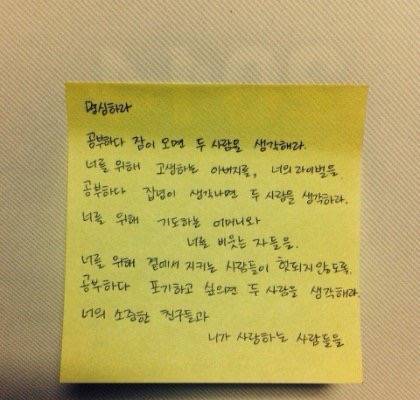 명심하라
공부하다 잠이 오면 두 사람을 생각해라.
너를 위해 고생하는 아버지를, 너의 라이벌을.
공부하다 잡념이 생각나면 두 사람을 생각하라.
너를 위해 기도하는 어머니와
너를 비웃는 자들을.
너를 위해 곁에서 지키는 사람들이 헛되지 않도록.
공부하다 포기하고 싶으면 두 사람을 생각해라
너의 소중한 친구들과
니가 사랑하는 사람들을